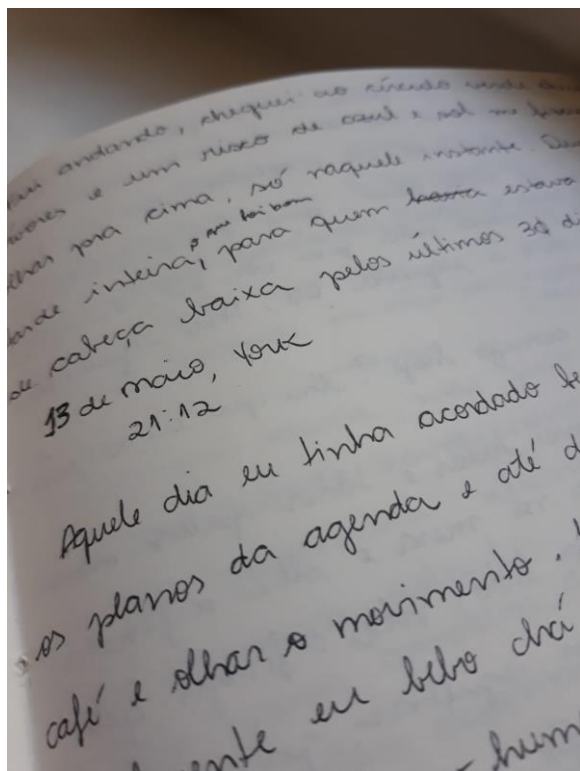 andando, cheguei ao círculo verde
e um risco de azul e sol me
pra cima, só naquele instante.
inteira, o que foi bom para quem estava
de cabeça baixa pelos últimos 30
13 de maio, York
21:12
Aquele dia eu tinha acordado
os planos da agenda e até
café e olhar o movimento.
eu bebo chá